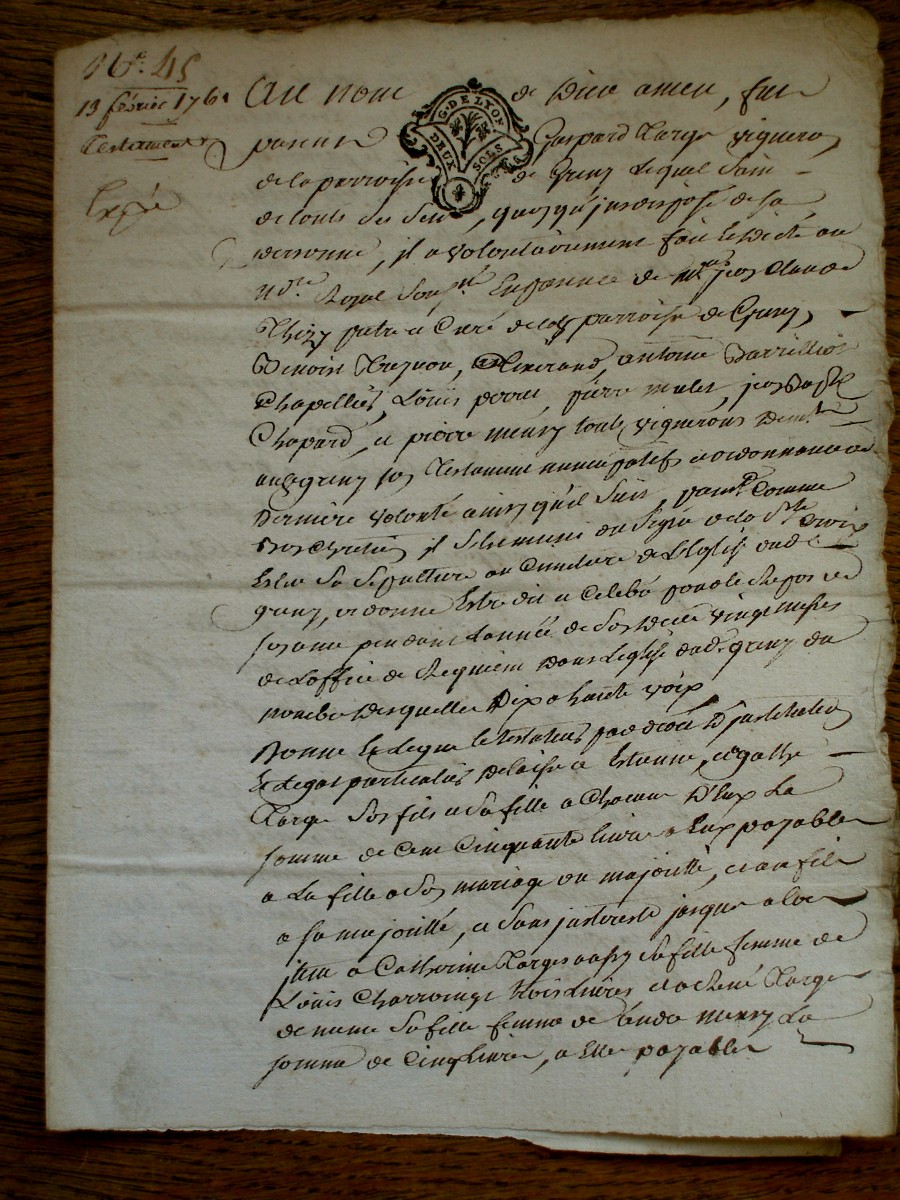 N.º 45
13 février 1761
Testament
Expé
G. DE LYON
DEUX SOLS
Au nom de Dieu amen, fut
present Gaspard Large vigneron
de la parroisse de Greny Lequel sain
de touts ses sens, quoyqu'indisposé de sa
personne, il a volontairement fait et dicté au
n.re Royal sous.né En presence de M.re jean Claude
Thizy prêtre et Curé de la parroisse de Greny,
Benoist , , antoine
Chapellier, Louis perret, pierre mulet, jean bap.te
Chapard, et pierre meury touts vignerons dem.t
aud. greny son Testament nuncupatif et ordonnance de
derniere volonté ainsy qu'il suit, prem.t comme
bon chretien il s'est muni du signe de la S.te Croix
Eslit sa sepulture au Cimetiere de l'Eglise dud.
greny, ordonne Estre dit et celebré pour le Repos de
son ame pendant l'année de son decés vingt messes
de l'office de Requiem dans l'Eglise dud. greny du
nombre desquelles dix a haute voix
Donne et Legue le testateur par droit d'institution
et Legat particulier delaisse a Estienne, et agathe
Large son fils et sa fille a chacun d'Eux La
somme de Cent Cinquante livres a Eux payable
a La fille a son mariage ou majorité, et au fils
a sa majorité, et sans interest jusques alors
item a Catherine Large aussy sa fille femme de
Louis Charroings trois livres et a René Large
de meme sa fille femme de meury La
somme de Cinq livres, a Elles payable